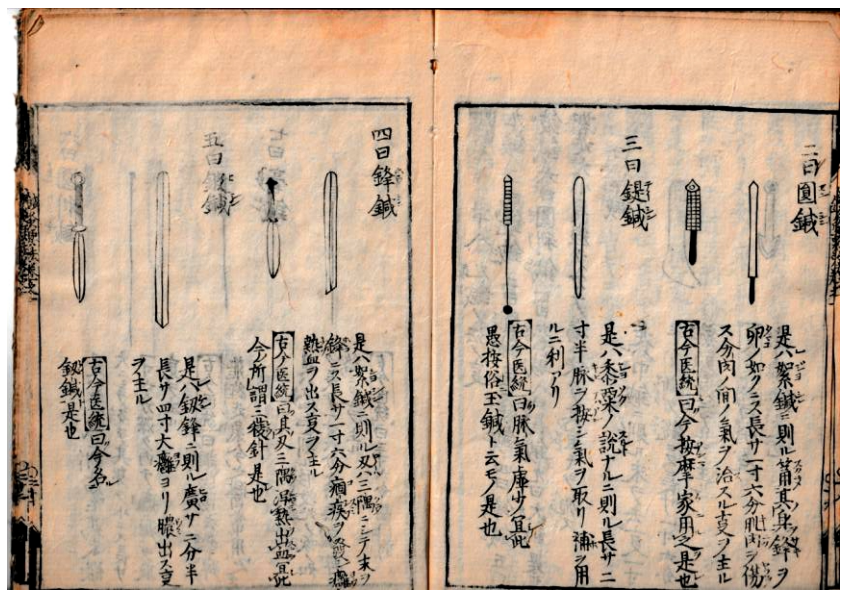 二曰圓鍼
是ハ絮鍼ニ則ル筩其身鋒ヲ
卵ノ如クニス長サ一寸六分肌肉ヲ傷
ス分肉ノ間ノ氣ヲ治スル㕝ヲ主ル
古今医統曰今按摩家用之是也
三曰鍉鍼
是ハ黍粟ノ説ナルニ則ル長サ三
寸半脉ヲ按シ氣ヲ取リ
ルニ利アリ
古今医統曰脉氣虚少宜此
愚按俗玉鍼ト云モノ是也
四曰鋒鍼
是ハ絮鍼ニ則ル刃三隅ニシテ末ヲ
鋒ニス長サ一寸六分痼疾ヲ發シ
熱血ヲ出ス㕝ヲ主ル
古今医統曰其刃三隅熱出血宜此
今所謂三稜針是也
五曰鈹鍼
是ハ釼鋒ニ則ル廣サ二分半
長サ四寸大癰ヨリ膿出ス㕝
ヲ主ル
古今医統曰今名
釼鍼是也